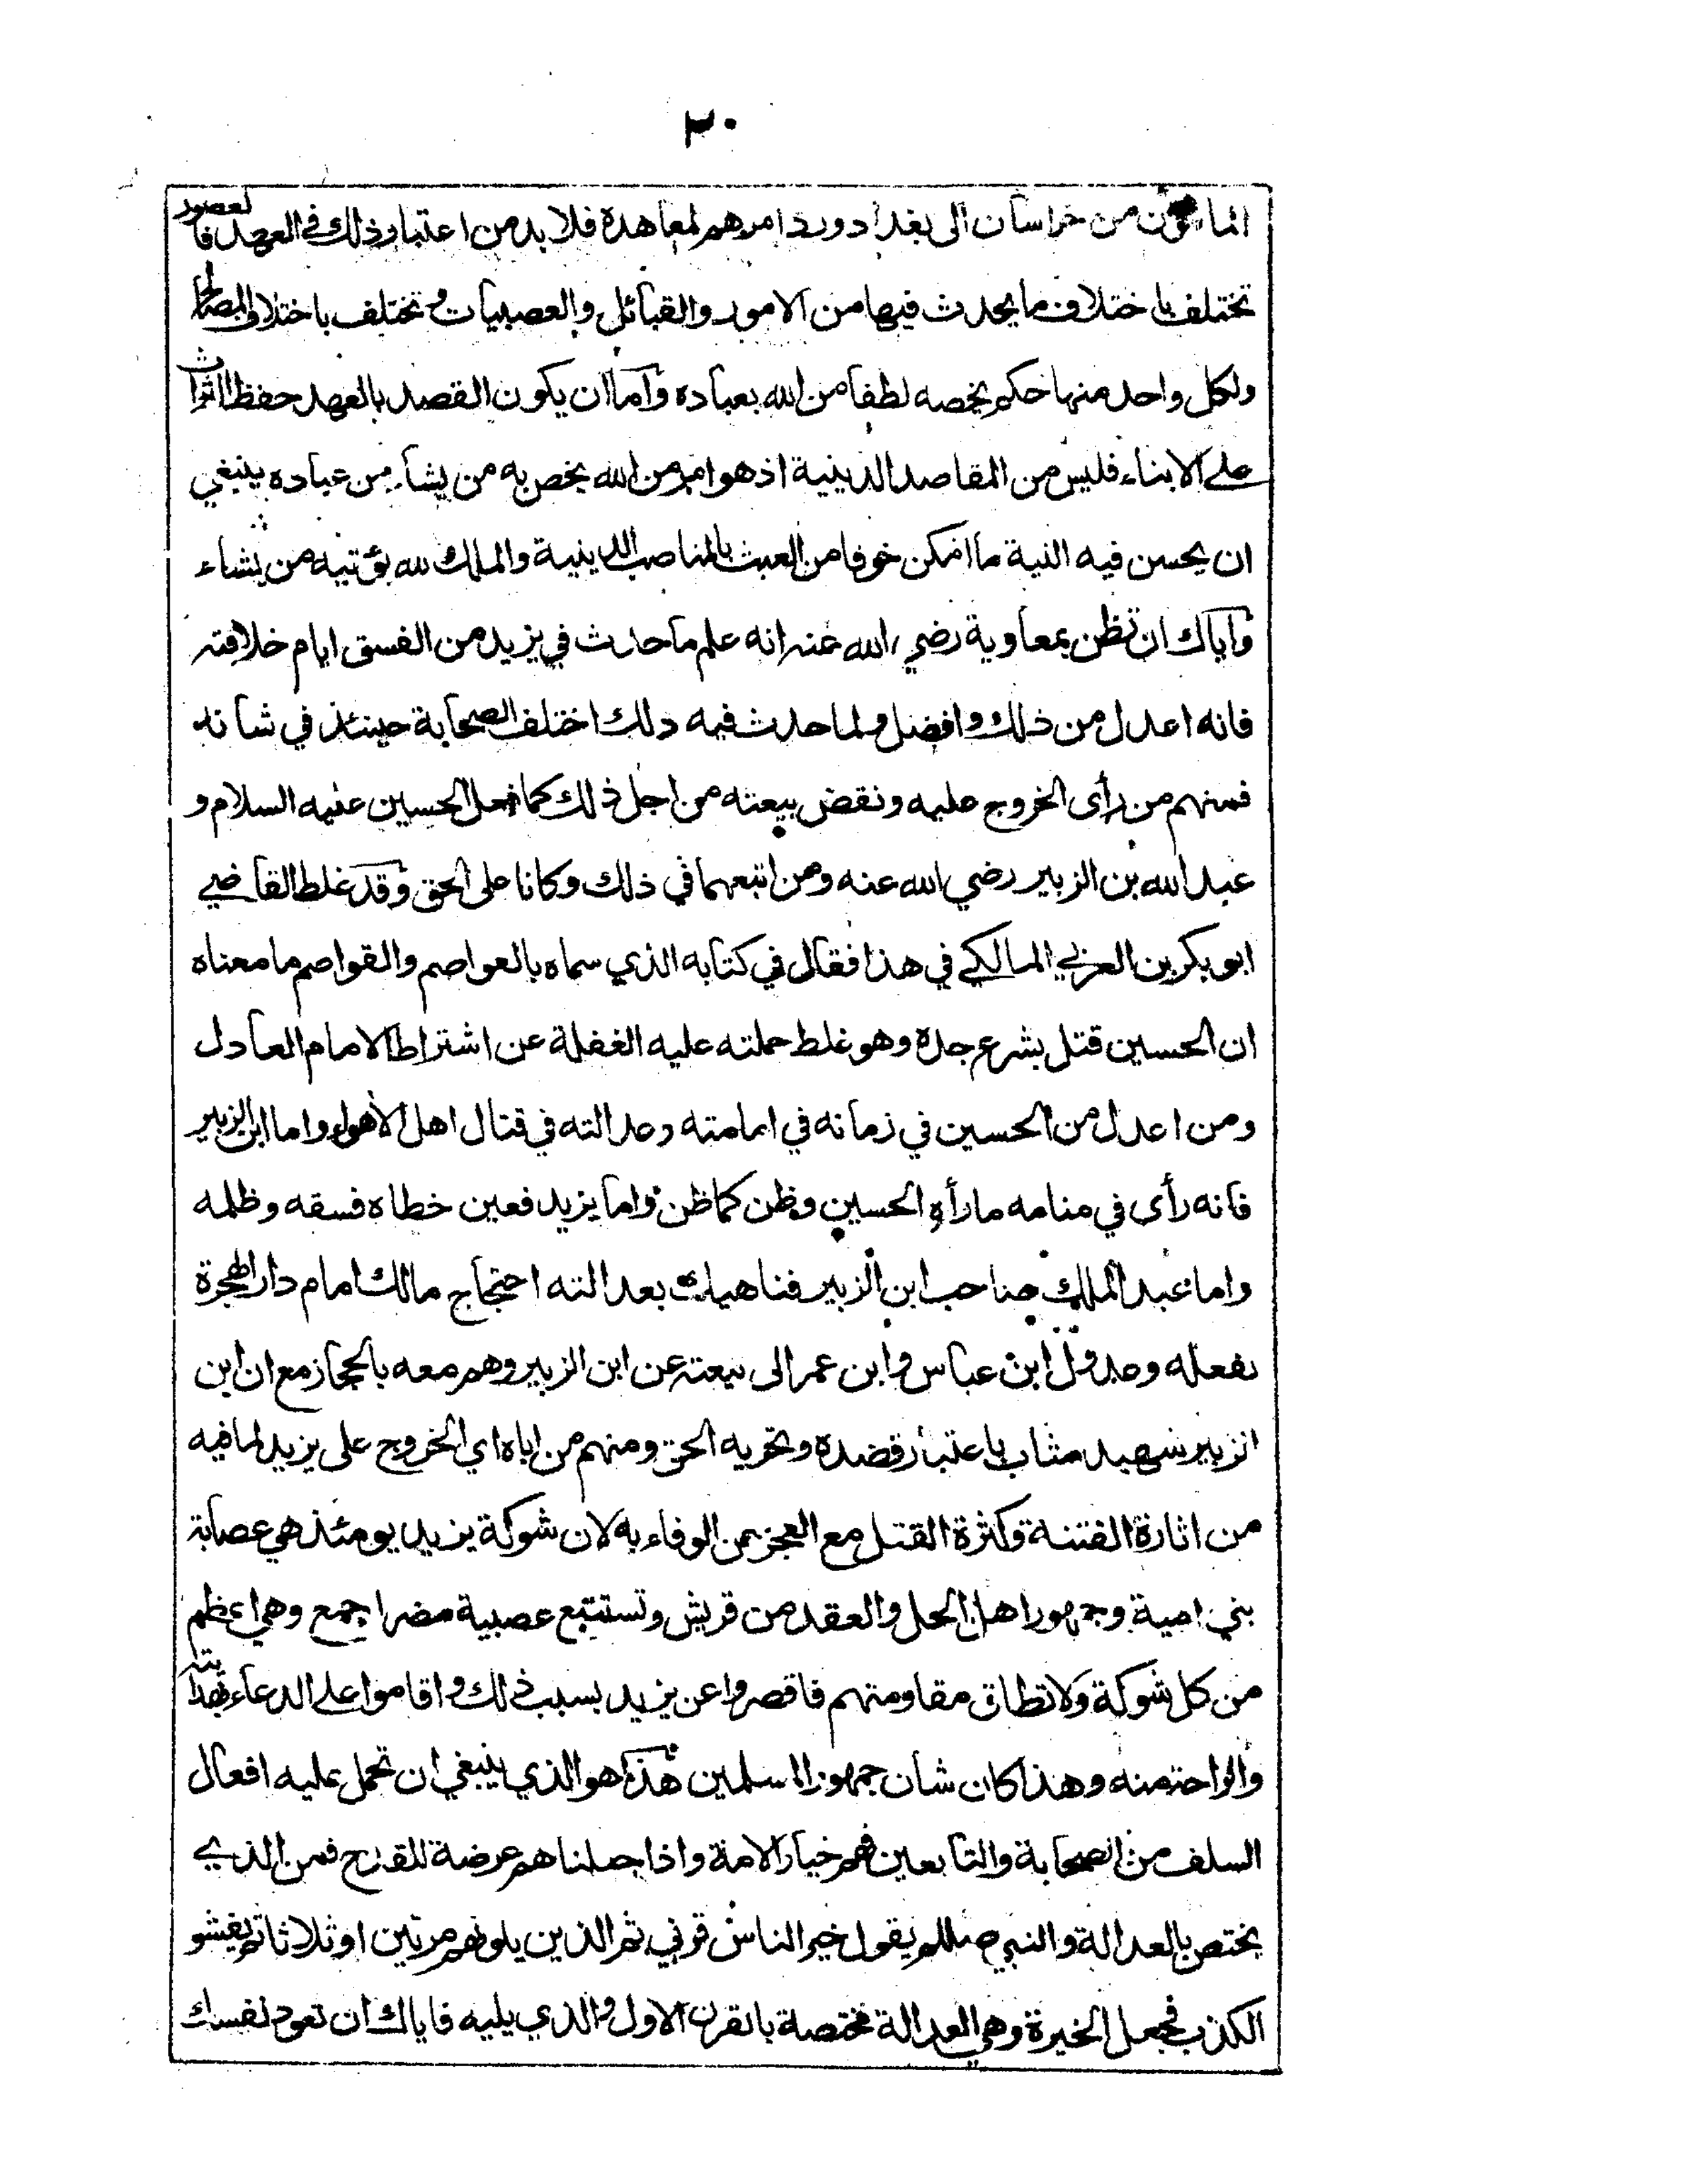 ٣٠
المامون من خراسان الى بغداد ورد امرهم لمعاهدة فلا بد من اعتبار ذلك في العهد فالعصور
تختلف باختلاف ما يحدث فيها من الامور والقبائل والعصبيات وتختلف باختلاف المصالح
ولكل واحد منها حكم يخصه لطفا من الله بعباده واما ان يكون القصد بالعهد حفظ التراث
على الابناء فليس من المقاصد الدينية اذ هو امر من الله يخص به من يشاء من عباده ينبغي
ان يحسن فيه النية ما امكن خوفا من العبث بالمناصب الدينية والملك لله يؤتيه من يشاء
واياك ان تظن بمعاوية رضي الله عنه انه علم ما حدث في يزيد من الفسق ايام خلافته
فانه اعدل من ذلك وافضل ولما حدث فيه ذلك اختلف الصحابة حينئذ في شانه
فمنهم من رأى الخروج عليه ونقض بيعته من اجل ذلك كما فعل الحسين عليه السلام و
عبد الله بن الزبير رضي الله عنه ومن اتبعهما في ذلك وكانا على الحق وقد غلط القاضي
ابو بكر بن العربي المالكي في هذا فقال في كتابه الذي سماه بالعواصم والقواصم ما معناه
ان الحسين قتل بشرع جده وهو غلط حملته عليه الغفلة عن اشتراط الامام العادل
ومن اعدل من الحسين في زمانه في امامته وعدالته في قتال اهل الأهواء واما ابن الزبير
فانه رأى في منامه ما رأه الحسين وظن كما ظن واما يزيد فعين خطاه فسقه وظلمه
واما عبد الملك صاحب ابن الزبير فناهيك بعدالته احتجاج مالك امام دار الهجرة
بفعله وعدول ابن عباس وابن عمر الى بيعته عن ابن الزبير وهم معه بالحجاز مع ان ابن
الزبير شهيد مثاب باعتبار قصده وتحريه الحق ومنهم من اباه اي الخروج على يزيد لما فيه
من اثارة الفتنة وكثرة القتل مع العجز عن الوفاء به لان شوكة يزيد يومئذ هي عصابة
بني امية وجمهور اهل الحل والعقد من قريش وتستتبع عصبية مضر اجمع وهي اعظم
من كل شوكة ولا تطاق مقاومتهم فاقصروا عن يزيد بسبب ذلك واقاموا على الدعاء بهدايته
والراحة منه وهذا كان شأن جمهور المسلمين هذا هو الذي ينبغي ان تحمل عليه افعال
السلف من الصحابة والتابعين فهم خيار الامة واذا جعلناهم عرضة للقدح فمن الذي
يختص بالعدالة والنبي صللم يقول خير الناس قرني ثم الذين يلونهم مرتين او ثلاثا ثم يفشو
الكذب فجعل الخيرة وهي العدالة مختصة بالقرن الاول والذي يليه فاياك ان تعود نفسك